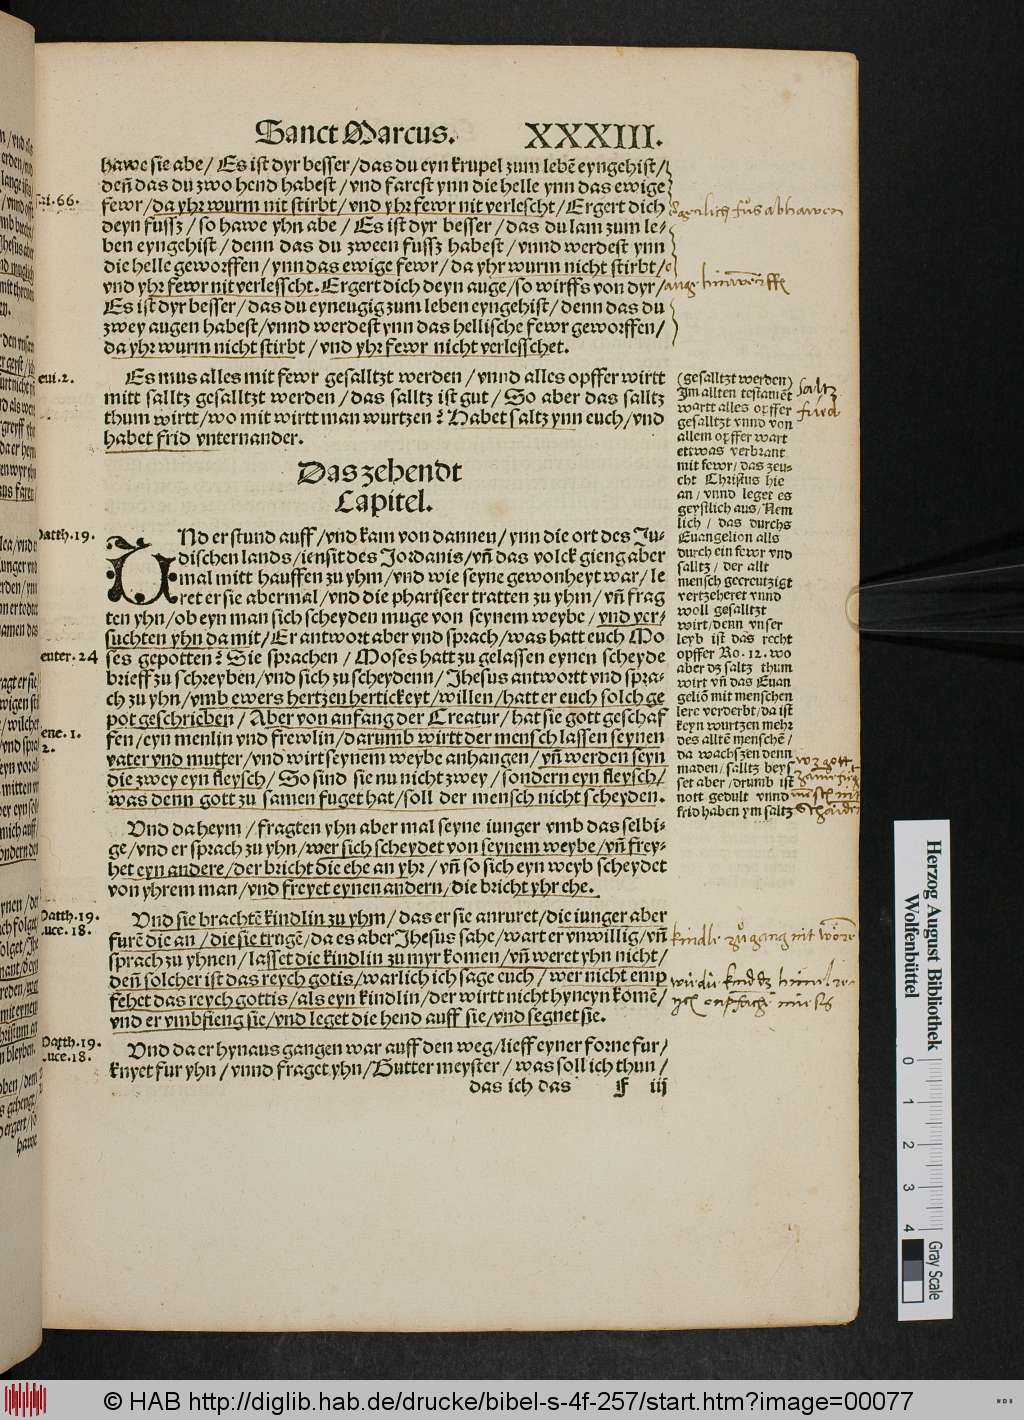 Sanct Marcus. XXXIII.
hawe sie abe / Es ist dyr besser / das du eyn krupel zum lebẽ eyngehist /
deñ das du zwo hend habest / vnd farest ynn die helle ynn das ewige
fewr / da yhr wurm nit stirbt / vnd yhr fewr nit verlescht / Ergert dich
deyn fussz / so hawe yhn abe / Es ist dyr besser / das du lam zum le-
ben eyngehist / denn das du zween fussz habest / vnnd werdest ynn
die helle geworffen / ynn das ewige fewr / da yhr wurm nicht stirbt /
vnd yhr fewr nit verlesscht. Ergert dich deyn auge / so wirffs von dyr /
Es ist dyr besser / das du eyneugig zum leben eyngehist / denn das du
zwey augen habest / vnnd werdest ynn das hellische fewr geworffen /
da yhr wurm nicht stirbt / vnd yhr fewr nicht verlesschet.
Es mus alles mit fewr gesalltzt werden / vnnd alles opffer wirtt
mitt salltz gesalltzt werden / das salltz ist gut / So aber das salltz
thum wirtt / wo mit wirtt man wurtzen? Habet saltz ynn euch / vnd
habet frid vnternander.
Das zehendt
Capitel.
VNd er stund auff / vnd kam von dannen / ynn die ort des Ju-
dischen lands / iensit des Jordanis / vñ das volck gieng aber
mal mitt hauffen zu yhm / vnd wie seyne gewonheyt war / le
ret er sie abermal / vnd die phariseer tratten zu yhm / vñ frag
ten yhn / ob eyn man sich scheyden muge von seynem weybe / vnd ver-
suchten yhn da mit / Er antwort aber vnd sprach / was hatt euch Mo
ses gepotten? Sie sprachen / Moses hatt zu gelassen eynen scheyde
brieff zu schreyben / vnd sich zu scheydenn / Jhesus antwortt vnd spra-
ch zu yhn / vmb ewers hertzen hertickeyt / willen / hatt er euch solch ge
pot geschrieben / Aber von anfang der Creatur / hat sie gott geschaf
fen / eyn menlin vnd frewlin / darumb wirtt der mensch lassen seynen
vater vnd mutter / vnd wirt seynem weybe anhangen / vñ werden seyn
die zwey eyn fleysch / So sind sie nu nicht zwey / sondern eyn fleysch /
was denn gott zu samen fuget hat / soll der mensch nicht scheyden.
Vnd daheym / fragten yhn aber mal seyne iunger vmb das selbi-
ge / vnd er sprach zu yhn / wer sich scheydet von seynem weybe / vñ frey-
het eyn andere / der bricht die ehe an yhr / vñ so sich eyn weyb scheydet
von yhrem man / vnd freyet eynen andern / die bricht yhr ehe.
Vnd sie brachtẽ kindlin zu yhm / das er sie anruret / die iunger aber
furẽ die an / die sie trugẽ / da es aber Jhesus sahe / wart er vnwillig / vñ
sprach zu yhnen / lasset die kindlin zu myr komen / vñ weret yhn nicht /
deñ solcher ist das reych gotis / warlich ich sage euch / wer nicht emp
fehet das reych gottis / als eyn kindlin / der wirtt nicht hyneyn komẽ /
vnd er vmbfieng sie / vnd leget die hend auff sie / vnd segnet sie.
Vnd da er hynaus gangen war auff den weg / lieff eyner forne fur /
knyet fur yhn / vnnd fraget yhn / Gutter meyster / was soll ich thun /
das ich das f iij
66.
2.
Matth. 19.
24
1.
2.
Matth. 19.
Luce. 18.
Matth. 19.
Luce. 18.
(gesalltzt werden)
Jm allten testamẽt
wartt alles opffer
gesalltzt vnnd von
allem opffer wart
ettwas verbrant
mit fewr / das zeu-
cht Christus hie
an / vnnd leget es
geystlich aus / Nem
lich / das durchs
Euangelion alls
durch ein fewr vnd
salltz / der allt
mensch gecreutzigt
vertzeheret vnnd
woll gesalltzt
wirt / denn vnser
leyb ist das recht
opffer Ro. 12. wo
aber dz saltz thum
wirt vñ das Euan
geliõ mit menschen
lere verderbt / da ist
keyn wurtzen mehr
des alltẽ menschẽ /
da wachszen denn
maden / salltz beys
set aber / drumb ist
nott gedult vnnd
frid haben ym saltz
saltz
frid
Herzog August Bibliothek
Wolfenbüttel
0 1 2 3 4
Gray Scale
© HAB http://diglib.hab.de/drucke/bibel-s-4f-257/start.htm?image=00077